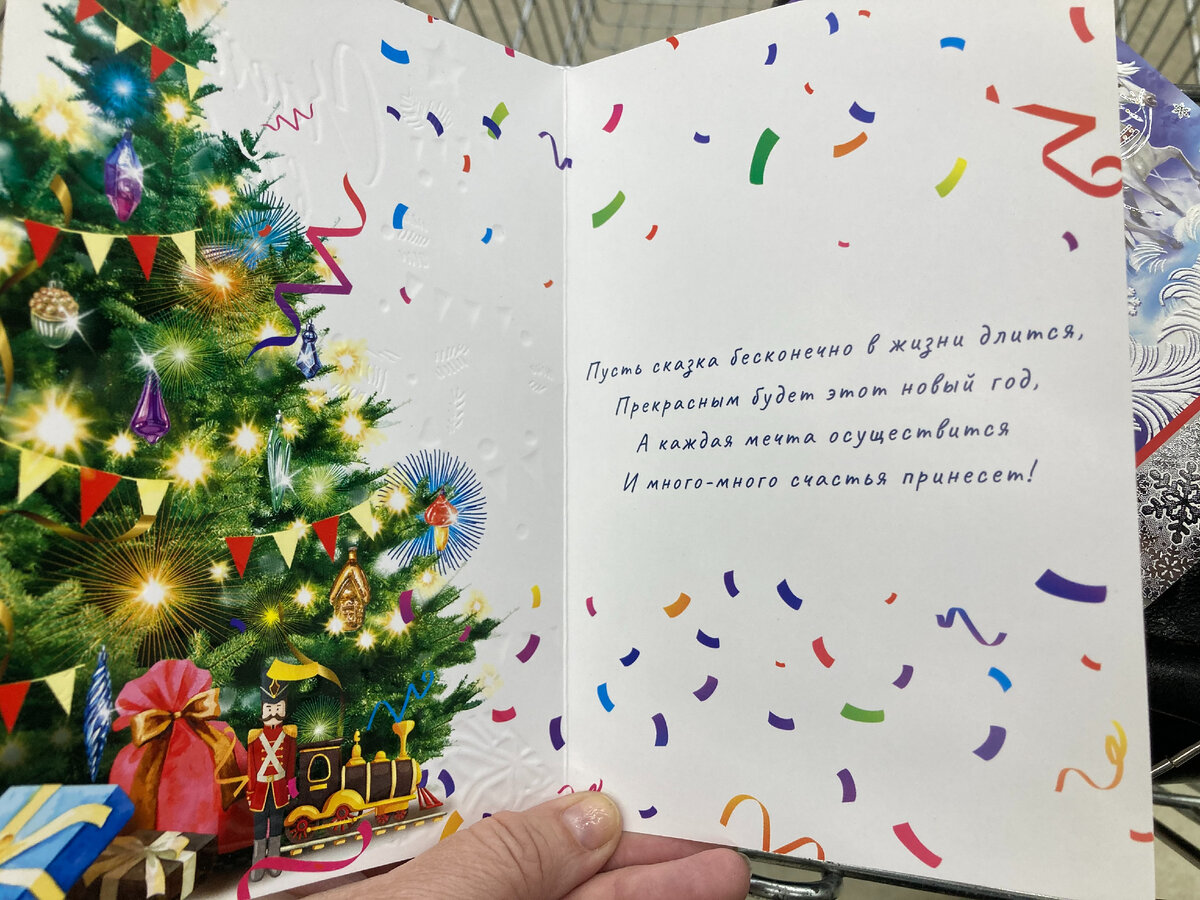 Пусть сказка бесконечно в жизни длится,
Прекрасным будет этот новый год,
А каждая мечта осуществится
И много-много счастья принесет!